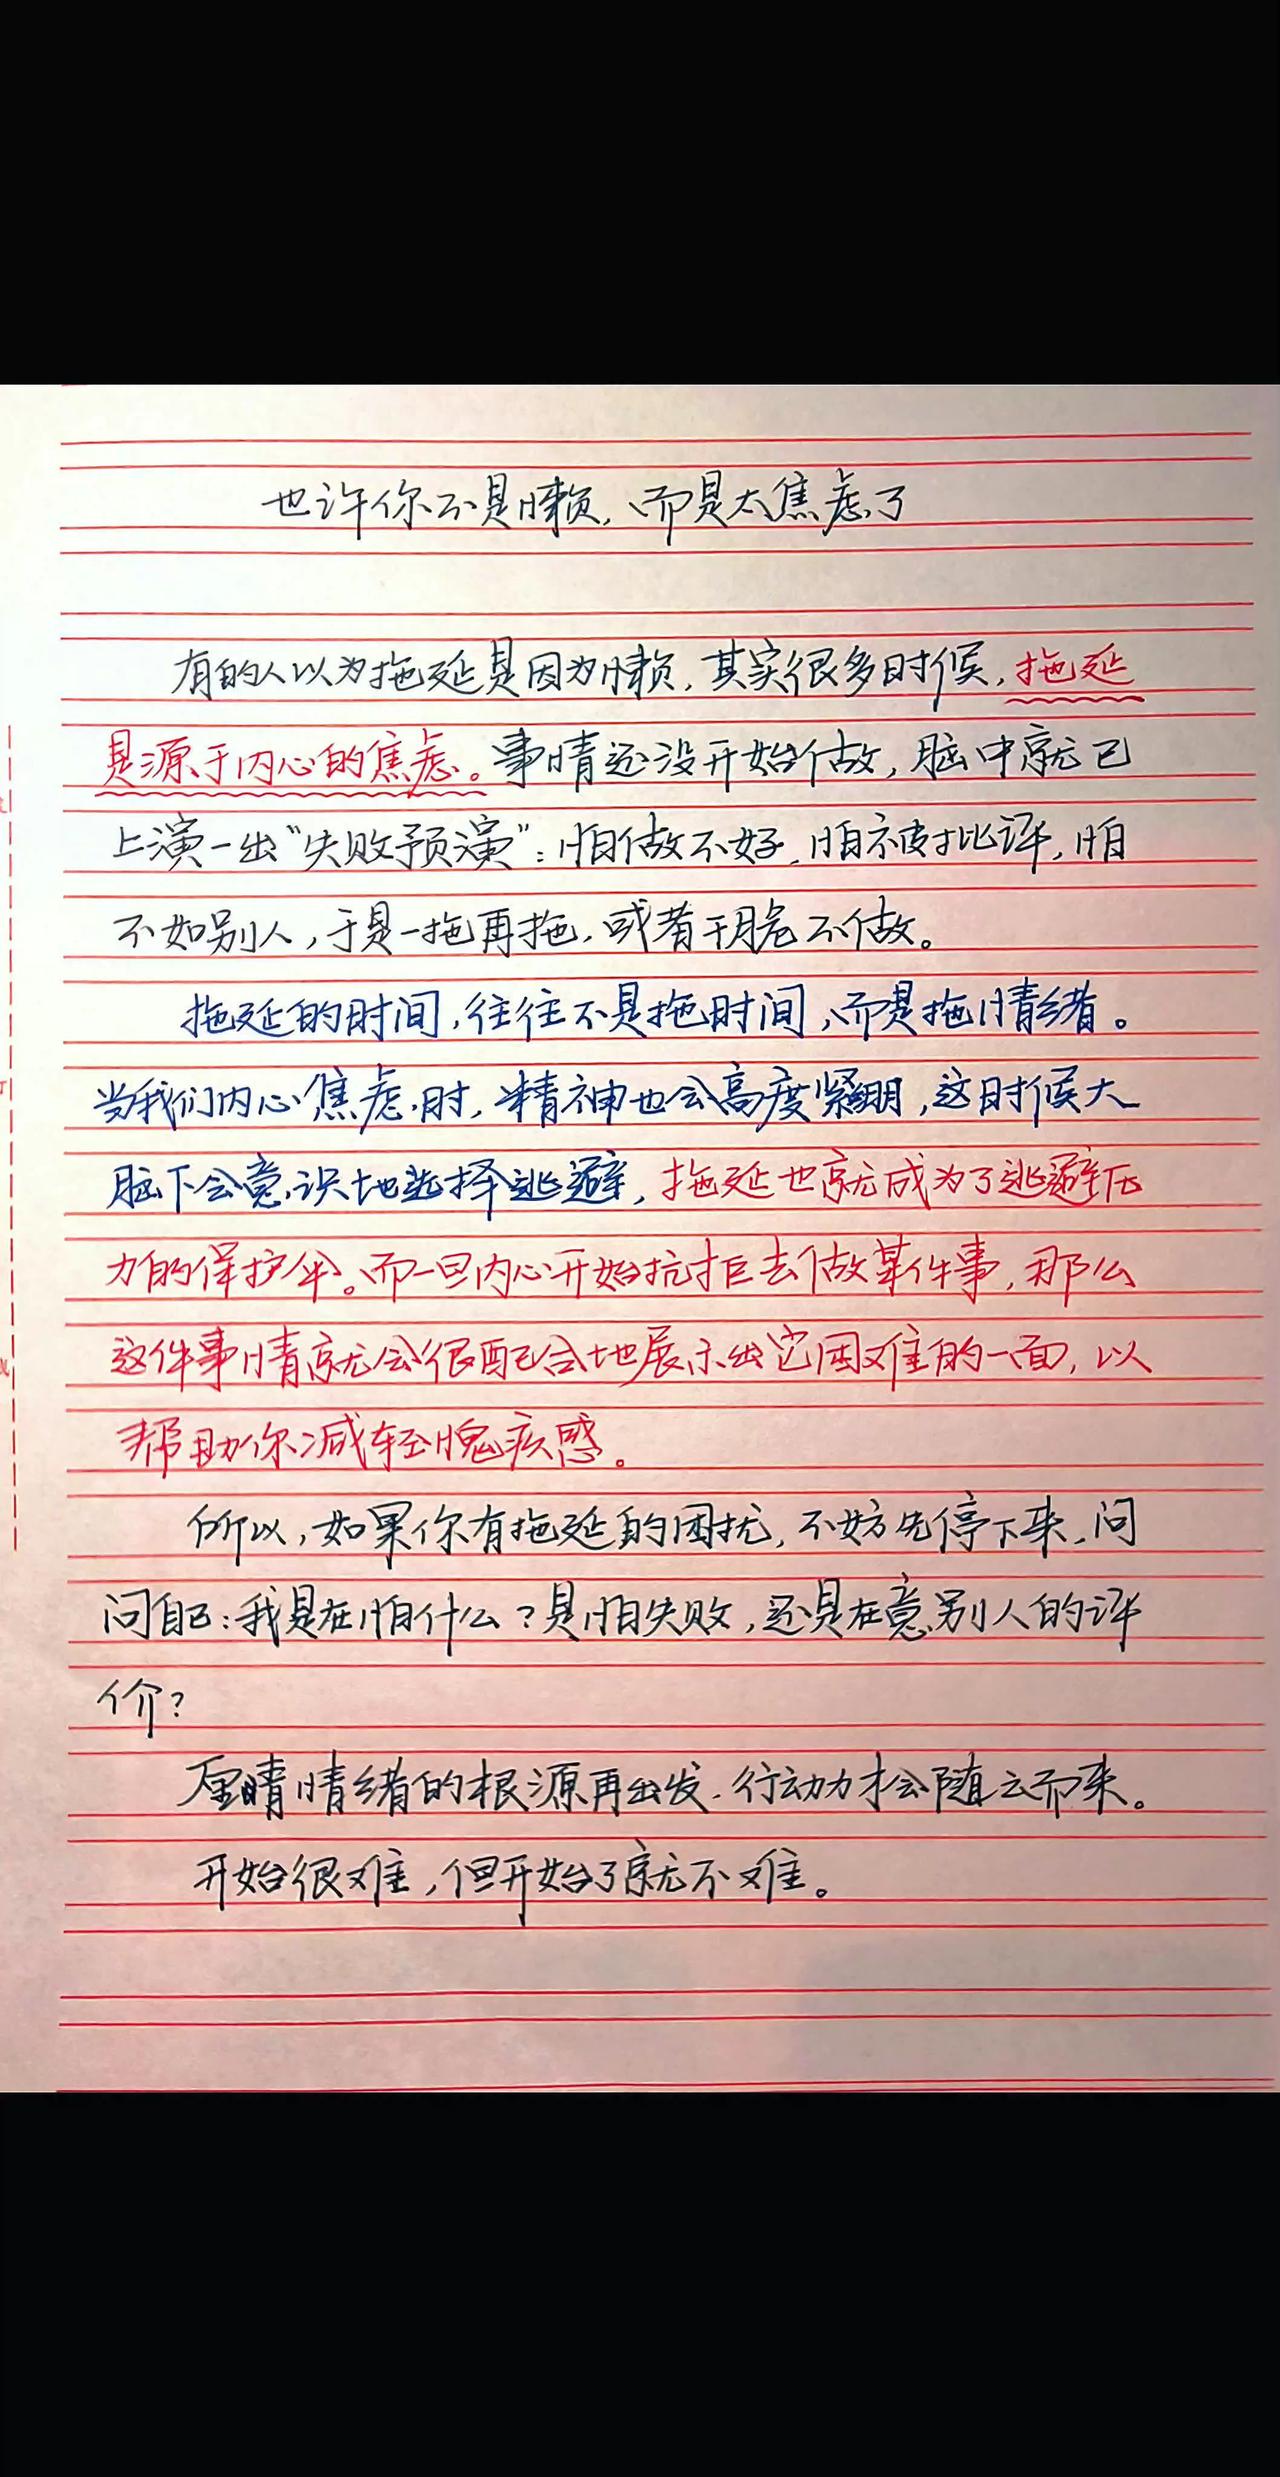 也许你不是懒，而是太焦虑了
有的人以为拖延是因为懒，其实很多时候，拖延
是源于内心的焦虑。事情还没开始做，脑中就已
上演一出“失败预演”：怕做不好，怕被批评，怕
不如别人，于是一拖再拖，或者干脆不做。
拖延的时间，往往不是拖时间，而是拖情绪。
当我们内心焦虑时，精神也会高度紧绷，这时候大
脑下会意识地选择逃避，拖延也就成为了逃避压
力的保护伞。而一旦内心开始抗拒去做某件事，那么
这件事情就会很配合地展示出它困难的一面，以
帮助你减轻愧疚感。
所以，如果你有拖延的困扰，不妨先停下来，问
问自己：我是在怕什么？是怕失败，还是在意别人的评
价？
厘晴情绪的根源再出发，行动力才会随之而来。
开始很难，但开始了就不难。